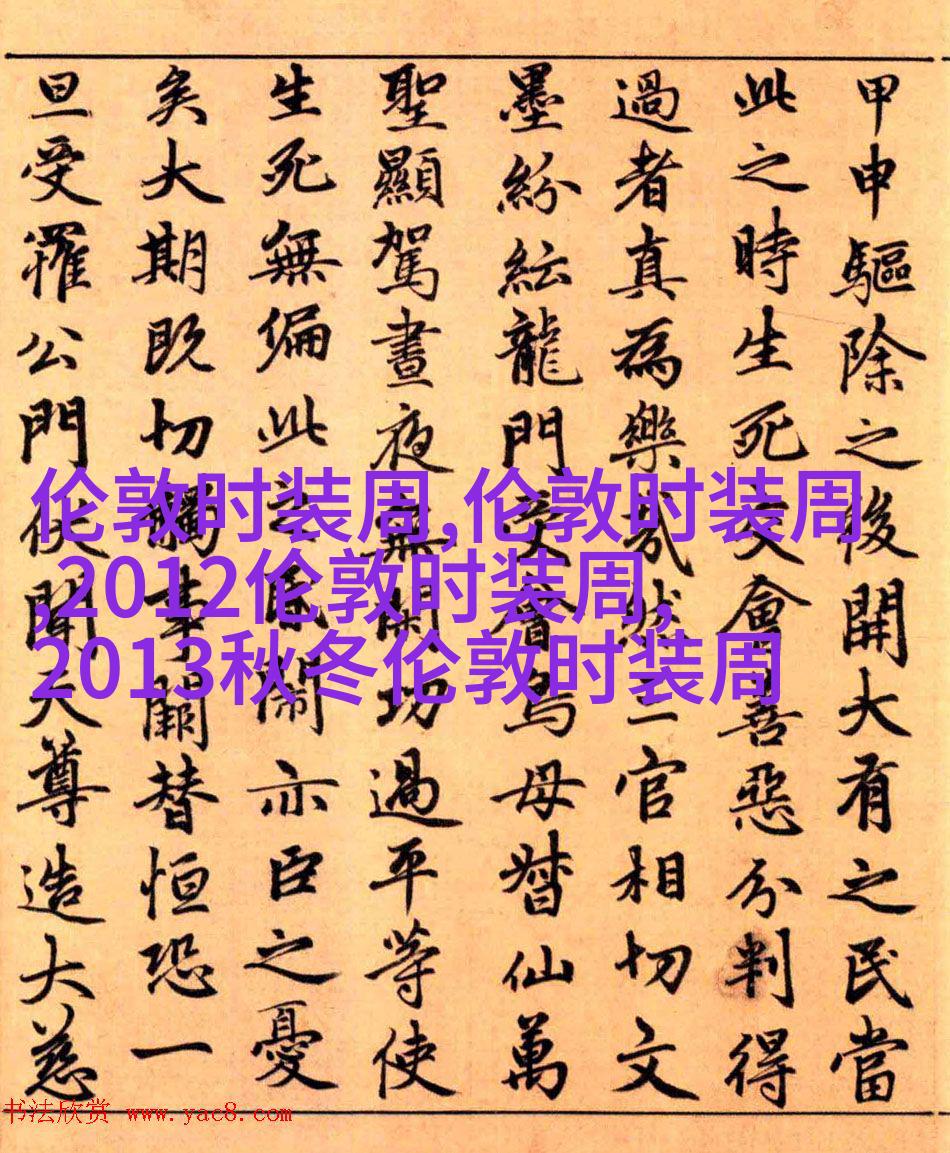 甲申驅除之後開大有之民當
此之時生死文會善惡分判得
過者真為樂哉然三官相切文
墨紛紜龍門受會鳥母督仙萬
聖顯駕晝夜無閑功過平等使
生死無偏此之閙亦臣之憂
矣大期既切觸事闕替恒恐一
旦受罹公門伏聞天尊造大慈
伦敦时装周,伦敦时装周
,2012伦敦时装周,
2013秋冬伦敦时装周
书法欣赏 www.yac8.com